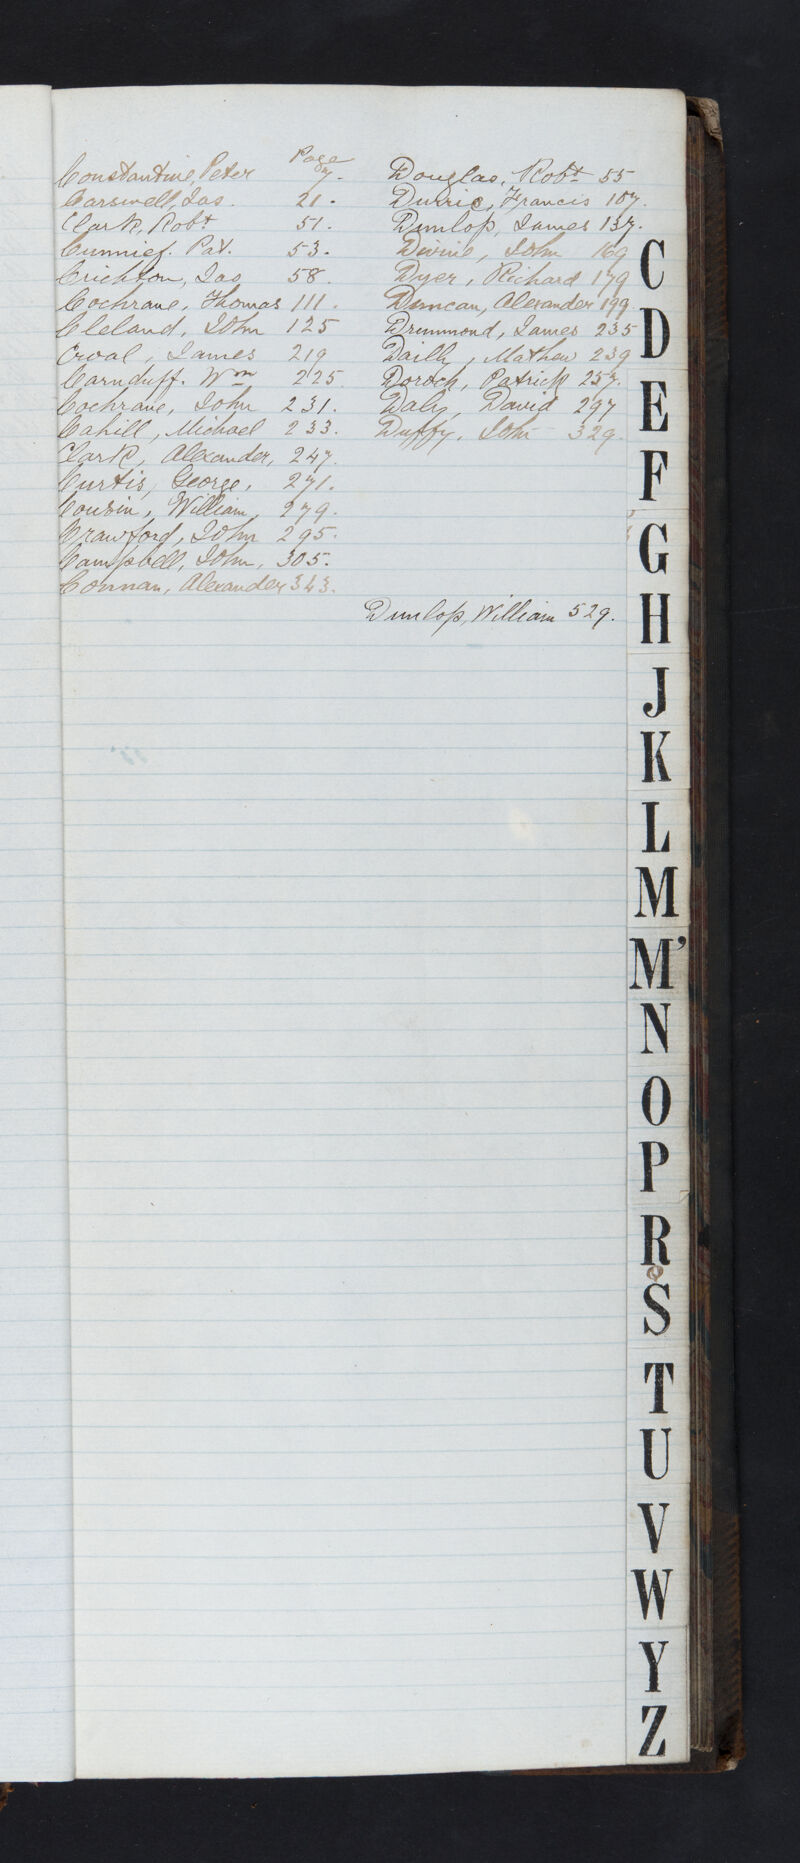 Page
Constantine, Peter 7.
Carswell, Jas. 21.
Clark, Robt 51.
Cunnief. Pat. 53.
Crichton, Jas 58.
Cochrane, Thomas 111.
Cleland, John 125
Croal, James 219
Carnduff. Wm 225
Cochrane, John 231.
Cahill, Michael 233.
Clark, Alexander, 247.
Curtis, George, 271.
Cousin, William, 279.
Crawford, John 295.
Campbell, John, 305.
Connan, Alexander 343.
Douglas, Robt 55
Durrie, Francis 107.
Dunlop, James 137.
Divine, John 169
Dyer, Richard 179
Duncan, Alexander 199
Drummond, James 235
Dailly, Mathew 239
Doroch, Patrick 257.
Daly, David 297
Duffy, John 329.
Dunlop, William 529.
C
D
E
F
G
H
J
K
L
M
M'
N
O
P
R
S
T
U
V
W
Y
Z